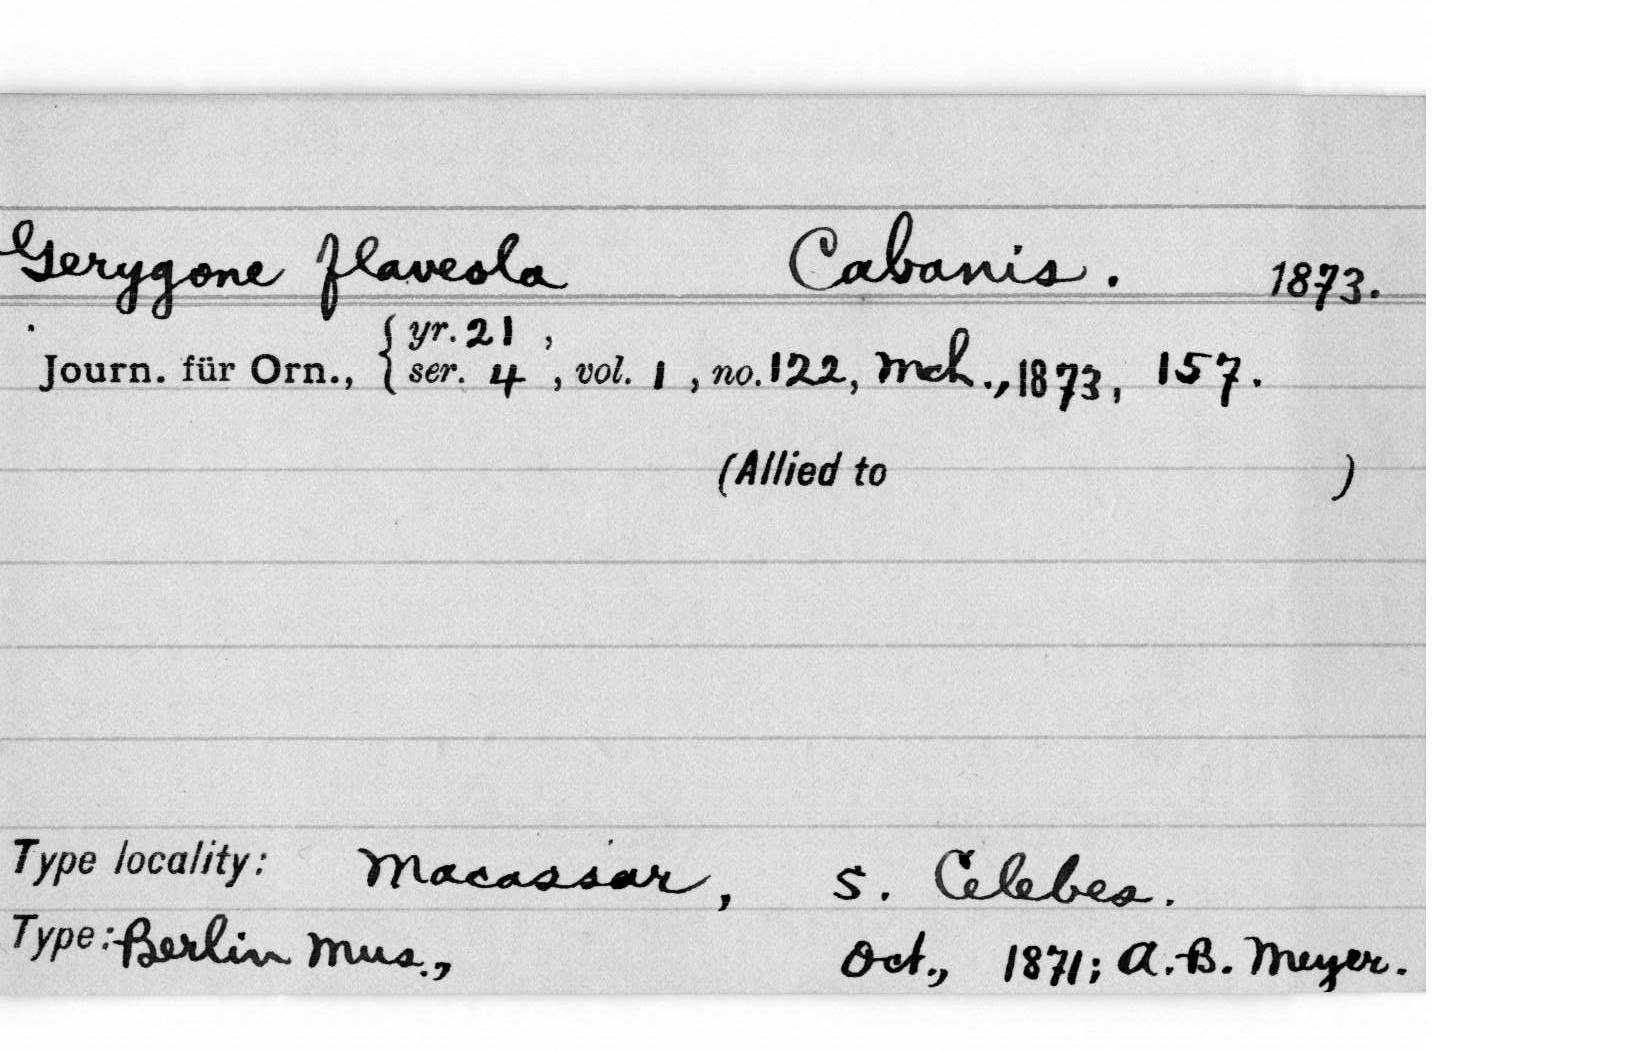 Gerygone flaveola Cabanis. 1873.
Journ. für Orn., { yr. 21 ,
ser. 4 , vol. 1 , no. 122, Mch., 1873, 157.
(Allied to )
Type locality: Macassar, S. Celebes.
Type: Berlin Mus., Oct., 1871; A. B. Meyer.